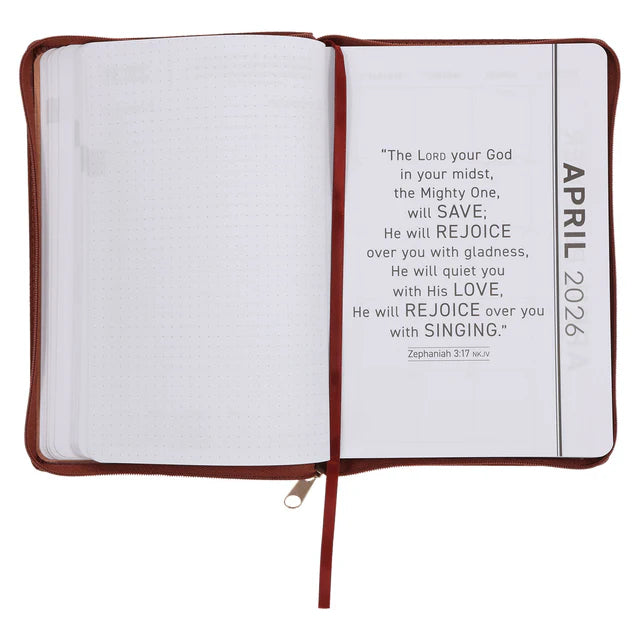 “The LORD your God
in your midst,
the Mighty One,
will SAVE;
He will REJOICE
over you with gladness,
He will quiet you
with His LOVE,
He will REJOICE over you
with SINGING.”
Zephaniah 3:17 NKJV
APRIL 2026